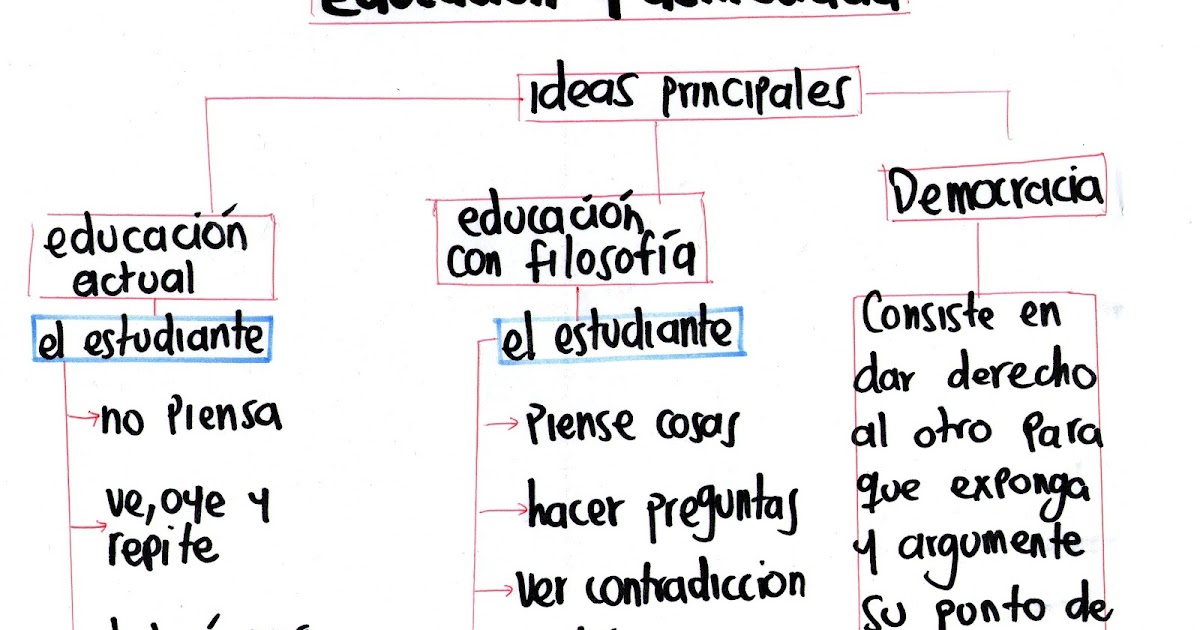 ideas principales
educación
actual
el estudiante
no piensa
ve, oye y
repite
educación
con filosofía
el estudiante
Piense cosas
hacer preguntas
ver contradiccion
Democracia
Consiste en
dar derecho
al otro para
que exponga
y argumente
su punto de